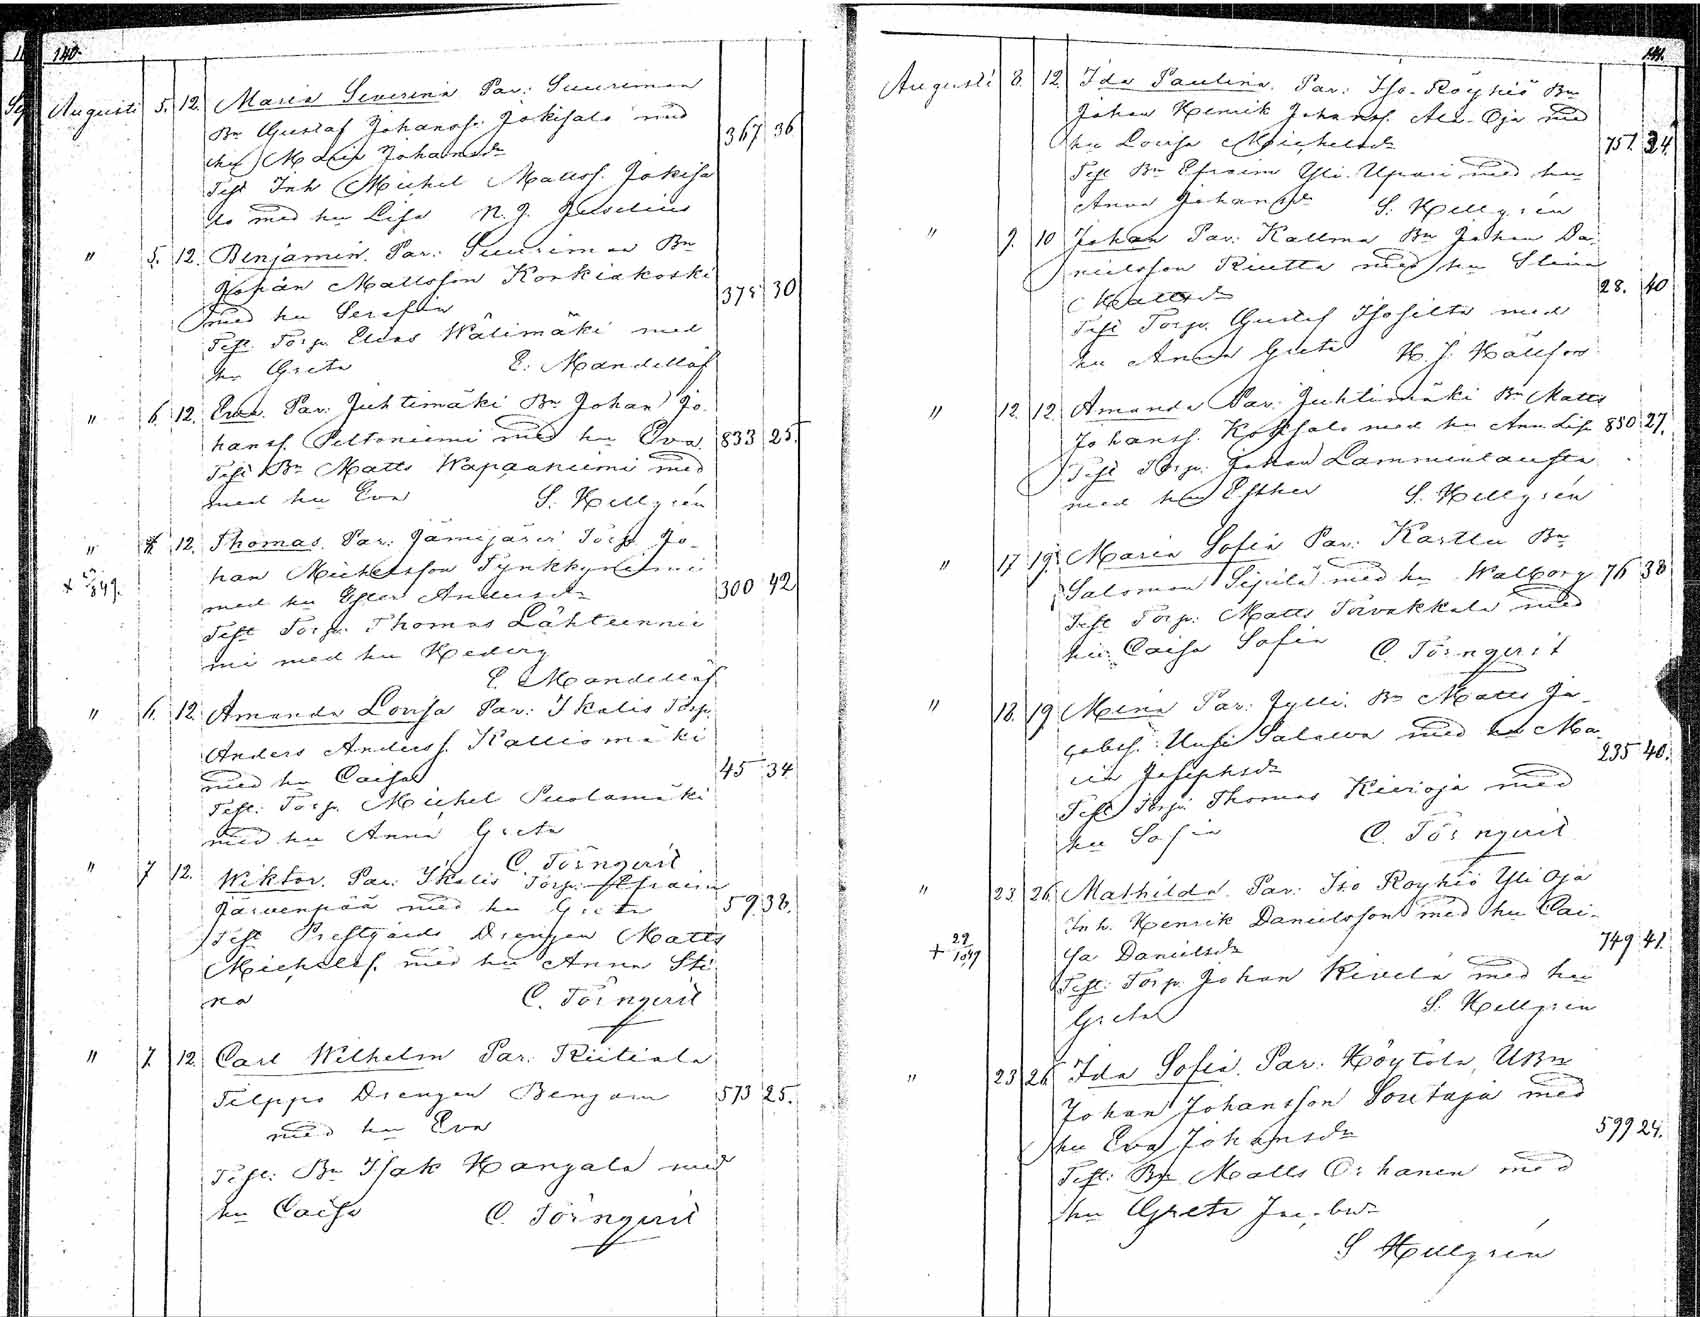 140.
Augusti 5. 12. Maria Severina Par: Suurimaa
Bn Gustaf Johanss. Jokisalo med
hu Maria Johansdr 367 36
Test Inh Michel Mattss. Jokisa
lo med hu Lisa N. J. Juselius
" 5. 12. Benjamin. Par: Suurimaa Bn
Johan Mattsson Konkiakoski
med hu Serafia 375 30
Test. Torp. Elias Wälimäki med
hu Greta E. Mandellöf
" 6 12. Eva. Par: Juhtimäki Bn Johan Jo-
hanss. Peltoniemi med hu Eva. 833 25.
Test Bn Matts Wapaaniemi med
med hu Eva S. Hellgrén
" 12. Thomas. Par: Jämijärvi Torp Jo-
han Michelsson Tynkkyniemi
med hu Ester Andersdr 300 42
Test Torp. Thomas Lähteennie
mi med hu Hedvig
E. Mandellöf
" 6. 12. Amanda Lovisa Par: Ikalis Torp.
Anders Anderss. Kalliomäki
med hu Caisa 45 34.
Test: Torp. Michel Puolamäki
med hu Anna Greta
C. Törnqvist
" 7 12. Wiktor. Par: Ikalis Torp. Efraim
Järvenpää med hu Greta 59. 38.
Test Prestgårds Drengen Matts
Michelss. med hu Anna Sti
na C. Törnqvist
" 7. 12. Carl Wilhelm Par: Riitiala
Filppo Drengen Benjam 573 25.
med hu Eva
Test: Bn Isak Hangala med
hu Caisa C. Törnqvist
141.
Augusti 8. 12. Ida Paulina. Par: Iso-Röyhiö Bn
Johan Henrik Johanss. Ala-Oja med
hu Lovisa Michelsdr 751. 24.
Test Bn Efraim Yli-Upari med hu
Anna Johansdr S. Hellgrén
" 9. 10 Johan Par: Kallma Bn Johan Da-
nielsson Riutta med hu Stina
Mattsdr 28. 40
Test Torp. Gustaf Isosilta med
hu Anna Greta H. J. Hällfors
" 12. 12. Amanda Par: Juhtimäki Bn Matts
Johanss. Koskisalo med hu Ann Lisa 850 27.
Test Torp. Johan Lamminlausta
med hu Esther S. Hellgrén
" 17 19. Maria Sofia Par: Karttu Bn
Salomon Sipilä med hu Walborg 76 38
Test Torp. Matts Torvakkala med
hu Caisa Sofia C. Törnqvist
" 18. 19 Mina Par: Jylli. Bn Matts Ja-
cobss. Uusi Salava med hu Ma-
ria Josephsdr 235 40.
Test Torp. Thomas Kivioja med
hu Sofia C. Törnqvist
" 23 26. Mathilda. Par: Iso Röyhiö Yli Oja
Inh. Henrik Danielsson med hu Cai-
+ 29 sa Danielsdr 749 41.
Test: Torp. Johan Kivelä med hu
Greta S. Hellgrén
" 23 26 Ida Sofia. Par: Höytölä, UBn
Johan Johansson Soutaja med
hu Eva Johansdr 599 24.
Test: Bn Matts Orhanen med
hu Greta Jacobsdr
S Hellgrén